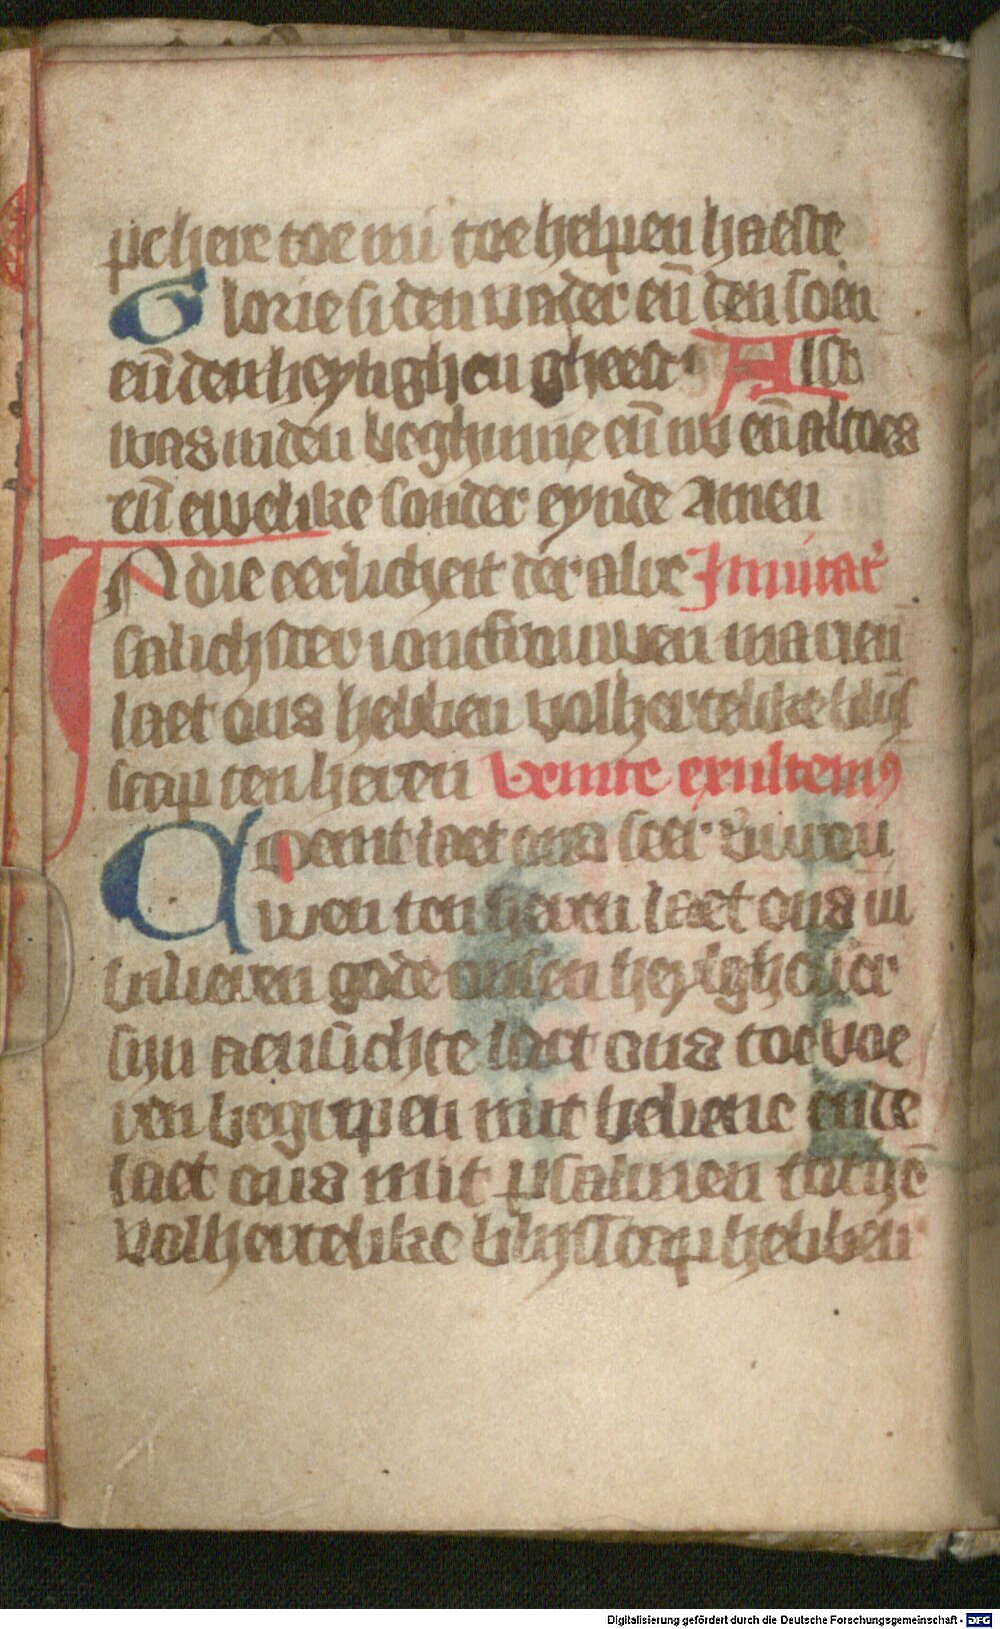 pe here toe mi toe helpen haeste
Glorie si den vader eñ den soen
eñ den heylighen gheest Also
was inden beghinne eñ nv eñ altoes
eñ ewelike sonder eynde Amen
In die eerlicheit der alre Jnuitat'
salichster ioncfrouwen marien
laet ons hebben volhertelike blijs
scap ten heren Venite exultemꝰ
Coemt laet ons seer
wen ten heren laet ons iu
bilieren gode onsen heylgheuer
sijn aensichte laet ons toe voe
ren begripen mit beliene ende
laet ons mit psalmen totẽ
volhertelike blijscap hebben
Digitalisierung gefördert durch die Deutsche Forschungsgemeinschaft - DFG